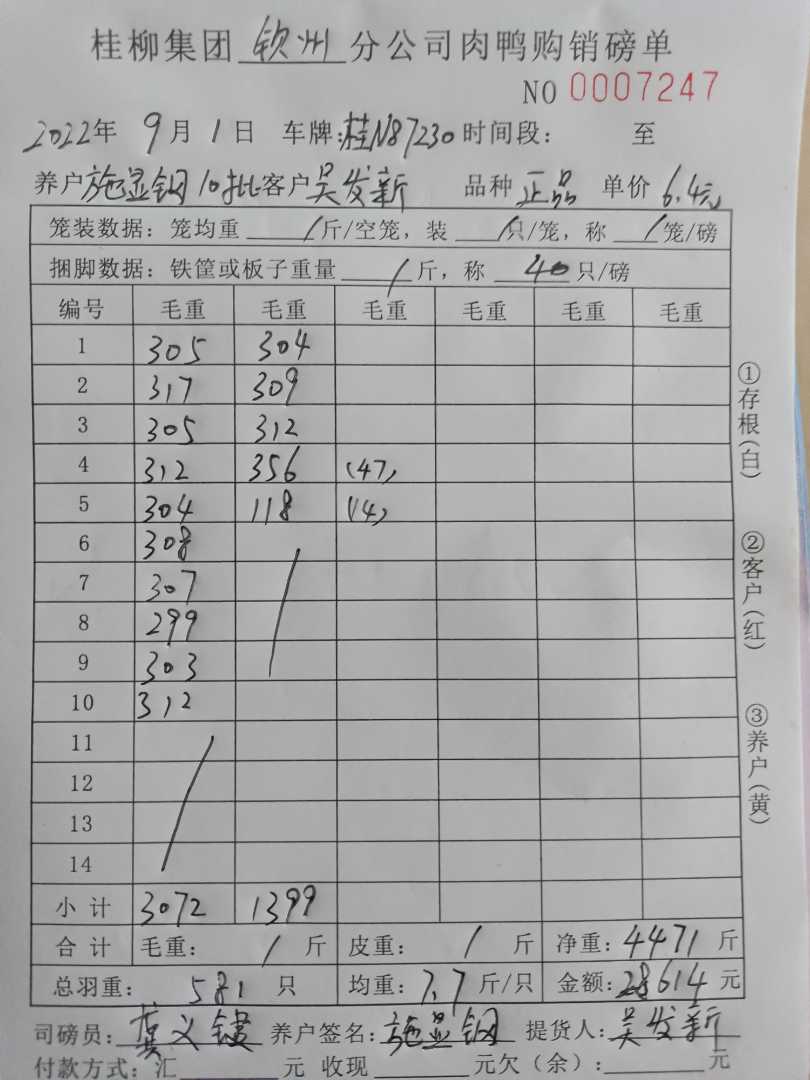 桂柳集团 钦州 分公司肉鸭购销磅单
NO 0007247
2022年 9月 1日 车牌:桂N87230 时间段: 至
养户 施显钢 10批 客户 吴发新 品种 正品 单价 6.4元
笼装数据: 笼均重 / 斤/空笼, 装 / 只/笼, 称 / 笼/磅
捆脚数据: 铁筐或板子重量 / 斤, 称 40 只/磅
编号 毛重 毛重 毛重 毛重 毛重 毛重
1 305 304
2 317 309
3 305 312
4 312 356 (47)
5 304 118 (14)
6 308
7 307
8 299
9 303
10 312
11
12
13
14
小计 3072 1399
合计 毛重: / 斤 皮重: / 斤 净重: 4471 斤
总羽重: 581 只 均重: 7.7 斤/只 金额: 28614 元
司磅员: 义 养户签名: 施显钢 提货人: 吴发新
付款方式: 汇 元 收现 元欠(余): 元
①存根(白)
②客户(红)
③养户(黄)